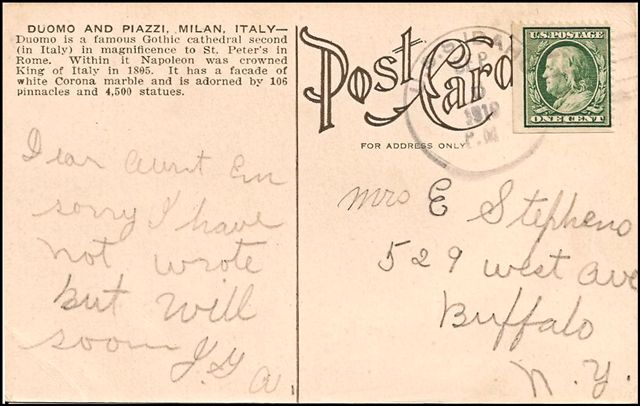 DUOMO AND PIAZZI, MILAN, ITALY—
Duomo is a famous Gothic cathedral second
(in Italy) in magnificence to St. Peter's in
Rome. Within it Napoleon was crowned
King of Italy in 1805. It has a facade of
white Corona marble and is adorned by 106
pinnacles and 4,500 statues.
Dear Aunt Em
sorry I have
not wrote
but will
soon
Post Card
FOR ADDRESS ONLY
SEP
1910
P.M
U.S. POSTAGE
ONE CENT
Mrs E Stephens
529 west ave
Buffalo
N.Y.